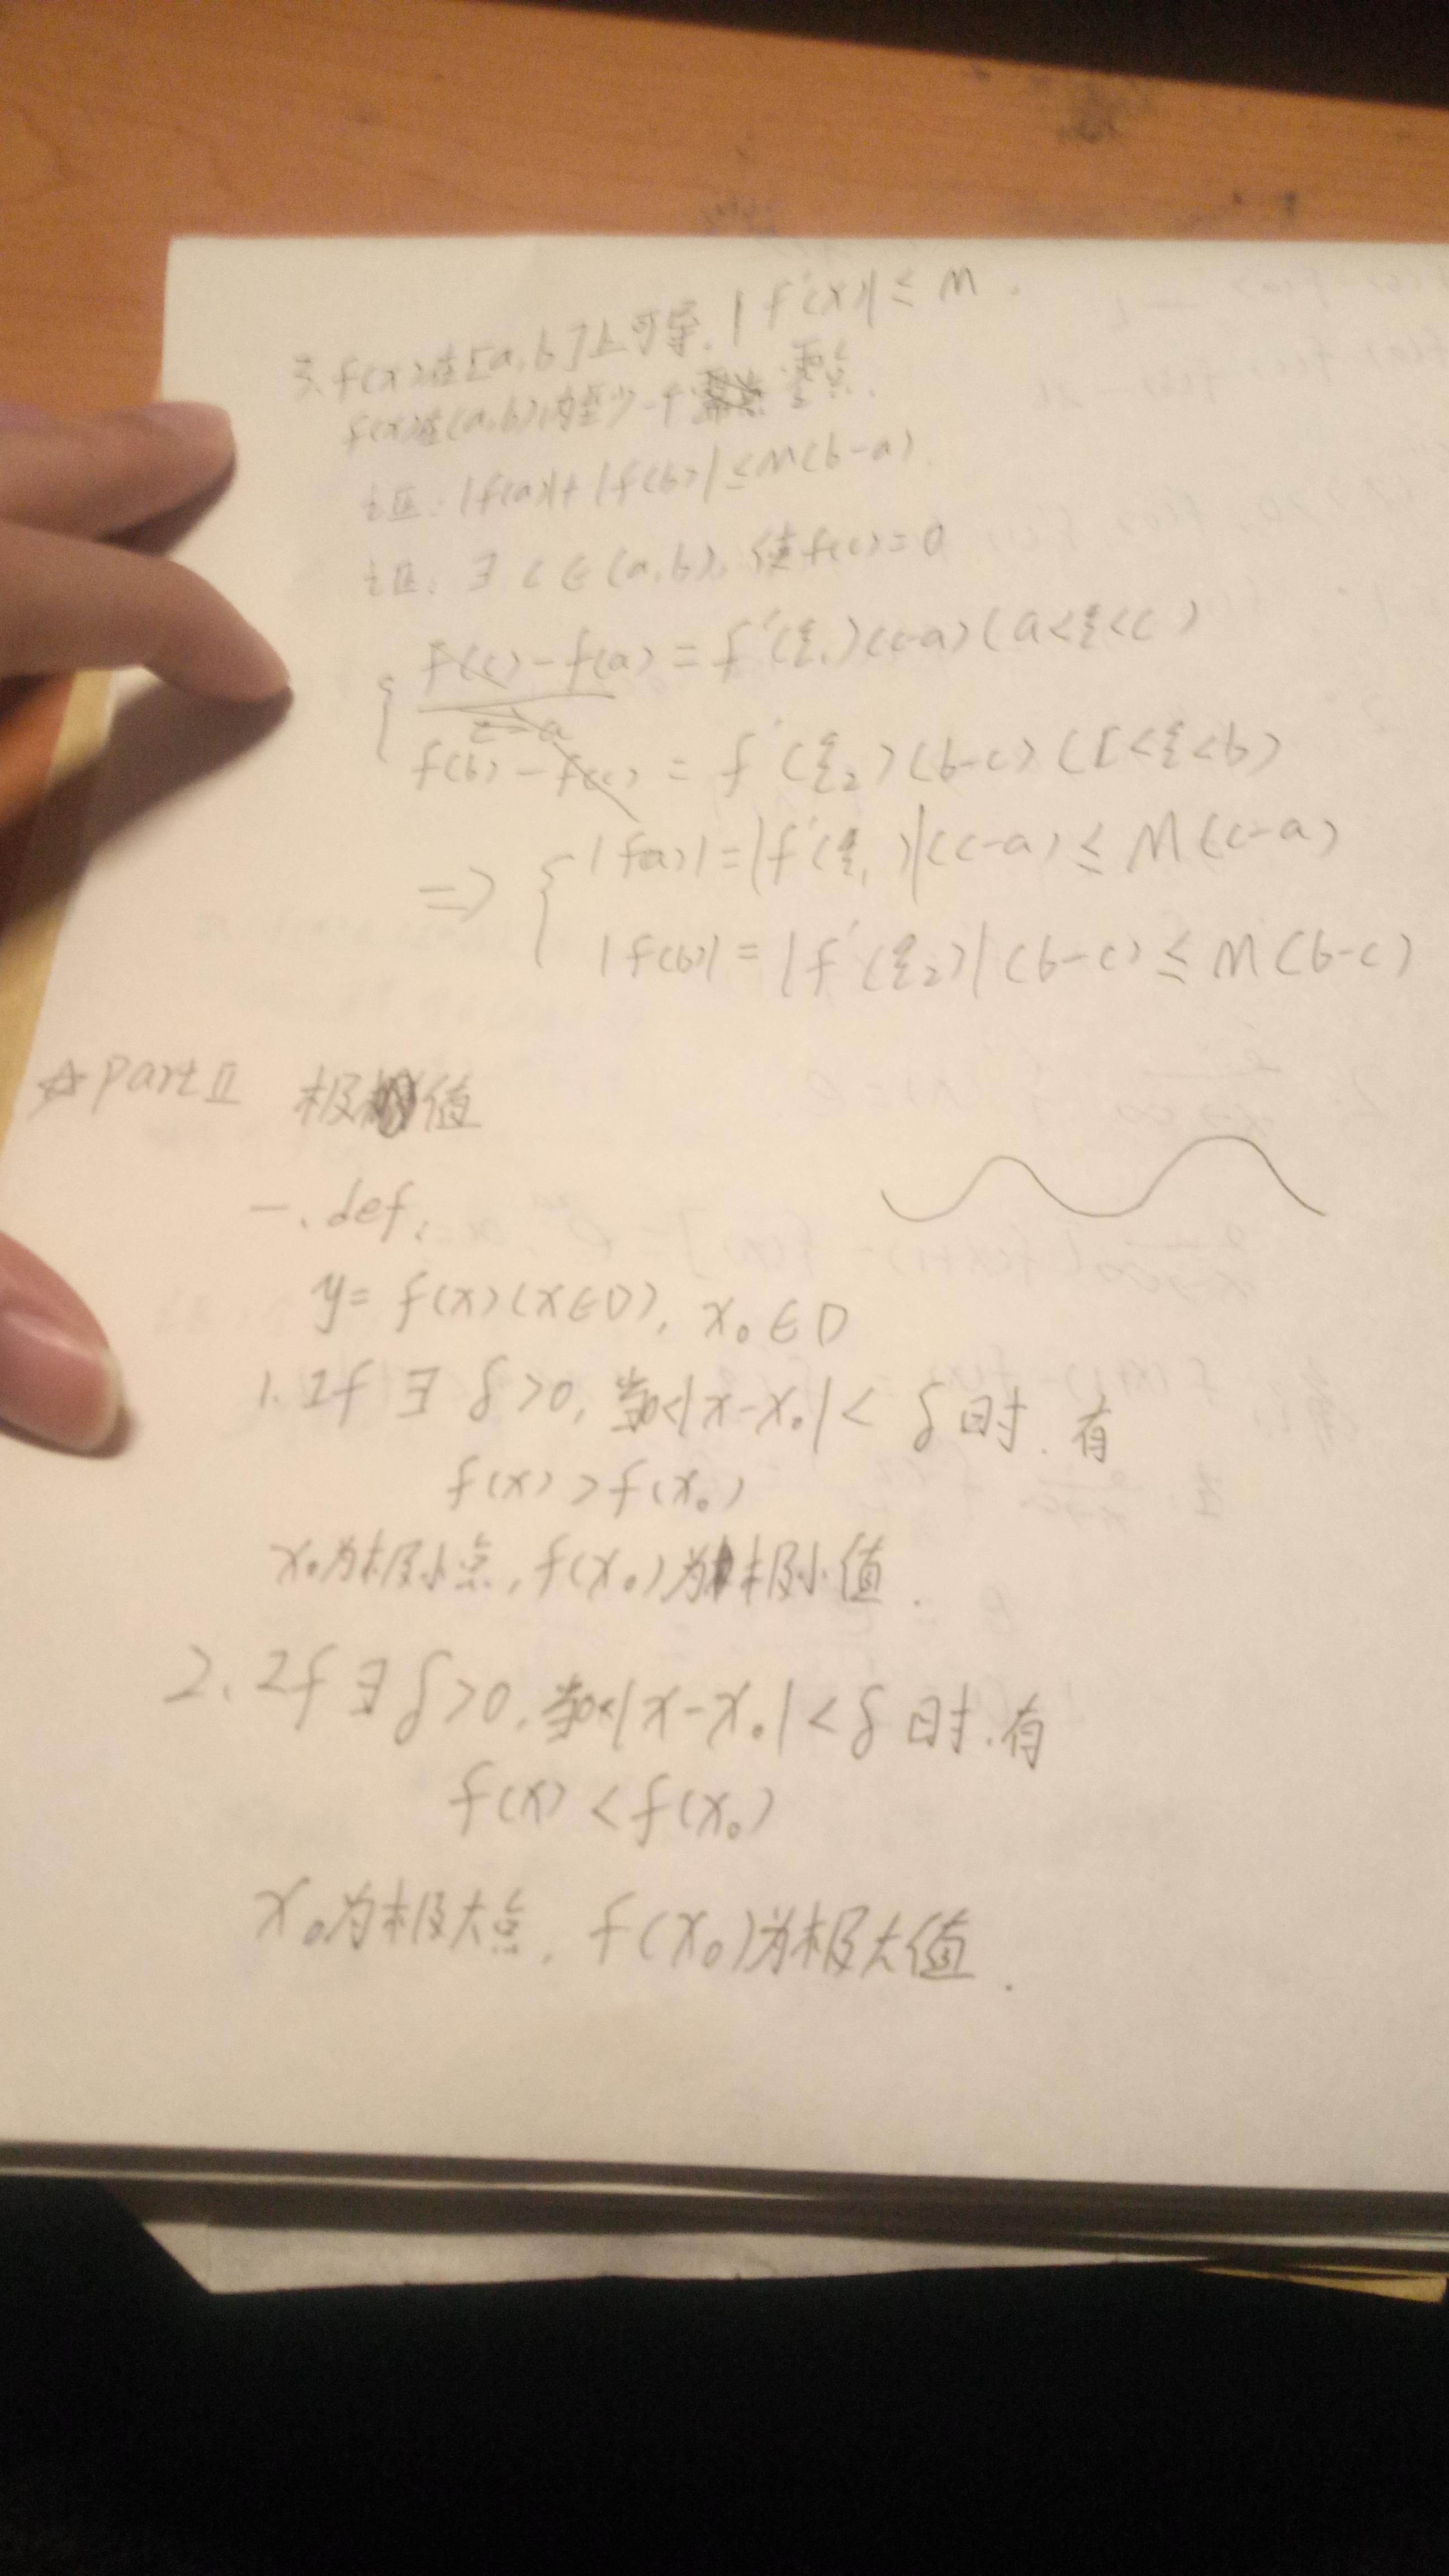 3. f(x)在[a,b]上可导, |f'(x)| ≤ M.
f(x)在(a,b)内至少一个零点.
证: |f(a)|+|f(b)| ≤ M(b-a).
证: ∃ c ∈ (a,b), 使f(c)=0
f(c)-f(a) = f'(ξ₁)(c-a) (a<ξ<c)
f(b)-f(c) = f'(ξ₂)(b-c) (c<ξ<b)
=> { |f(a)| = |f'(ξ₁)|(c-a) ≤ M(c-a)
|f(b)| = |f'(ξ₂)|(b-c) ≤ M(b-c)
☆ Part II 极值
一. def:
y= f(x) (x∈D), x₀∈D
1. If ∃ δ>0, 当0<|x-x₀|< δ 时. 有
f(x) > f(x₀)
x₀为极小点, f(x₀)为极小值.
2. If ∃ δ>0, 当0<|x-x₀|<δ 时. 有
f(x) < f(x₀)
x₀为极大点, f(x₀)为极大值.